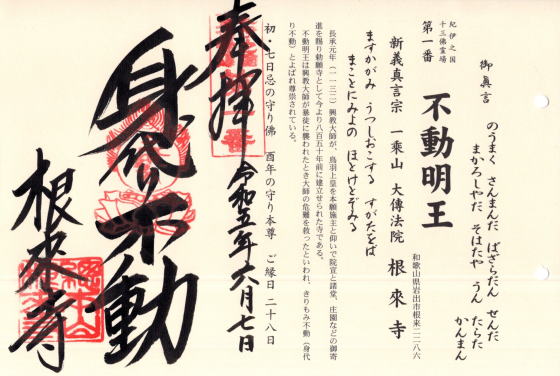 御眞言
のうまく さんまんだ ばざらだん せんだ
まかろしやだ そはたや うん たらた
かんまん
紀伊之国
十三佛霊場
第一番 不動明王
和歌山県岩出市根来二二八六
新義真言宗 一乗山 大傳法院 根來寺
ますかがみ うつしおこする すがたをば
まことにみよの ほとけとぞみる
長承元年(一一三二)興教大師が、鳥羽上皇を本願施主と仰いで院宣と諸堂、庄園などの御寄
進を賜り勅願寺として今より八百五十年前に建立せられた寺である。
不動明王は興教大師が暴徒に襲われたとき大師の危難を救ったといわれ、きりもみ不動(身代
り不動)とよばれ尊崇されている。
初・七日忌の守り佛 酉年の守り本尊 ご縁日 二十八日
奉拝 令和五年六月七日
身代り不動
根來寺